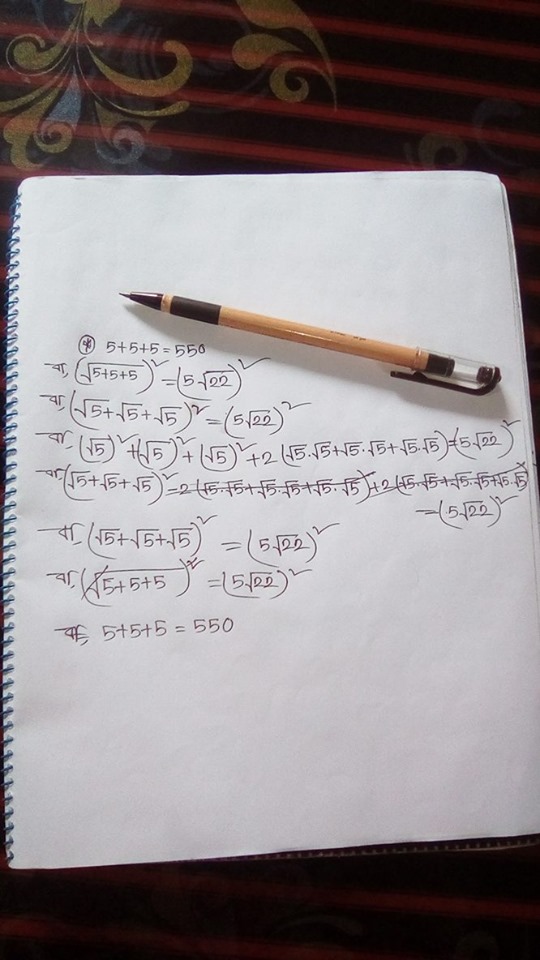 * 5+5+5=550
বা, (√5+5+5)² = (5√22)²
বা, (√5+√5+√5)² = (5√22)²
বা, (√5)²+(√5)²+(√5)²+2(√5.√5+√5.√5+√5.√5)=(5√22)²
বা, (√5+√5+√5)²-2(√5.√5+√5.√5+√5.√5)+2(√5.√5+√5.√5+√5.√5)
=(5√22)²
বা, (√5+√5+√5)² = (5√22)²
বা, (√5+5+5)² = (5√22)²
বা, 5+5+5=550